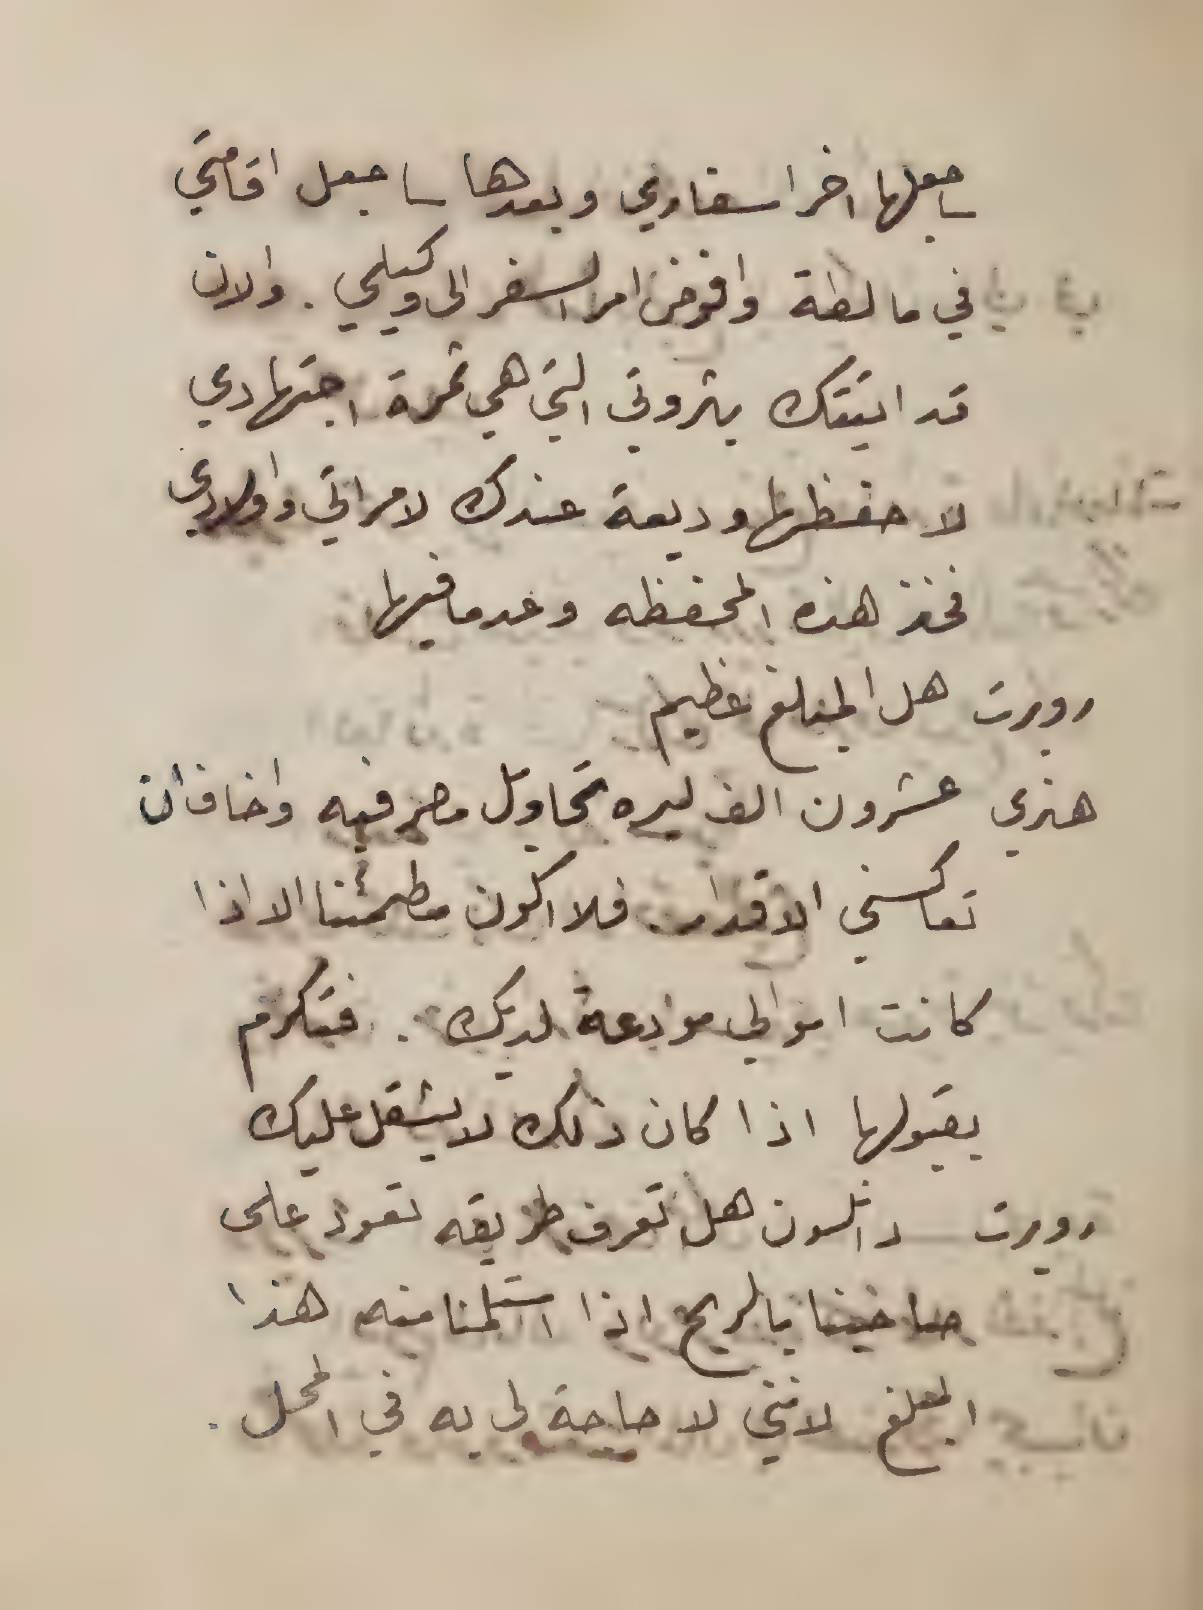 ساجعلها اخر اسفاري وبعدها ساجعل اقامتي
في مالطة وافوض امر السفر الى وكيلي . والان
قد اتيتك بثروتي التي هي ثمرة اجتهادي
لاحفظها وديعة عندك لامراتي واولادي
فخذ هذه المحفظه وعد ما فيها
روبرت هل المبلغ عظيم
هنري عشرون الف ليره تحاويل مصرفيه واخاف ان
تعاكسني الاقدار فلا اكون مطمئنا الا اذا
كانت اموالي مودعة لديك . فتكرم
بقبولها اذا كان ذلك لا يثقل عليك
روبرت دانلسون هل تعرف طريقه تعود على
صاحبنا بالربح اذا استلمنا منه هذا
المبلغ لانني لا حاجة لي به في المحل .